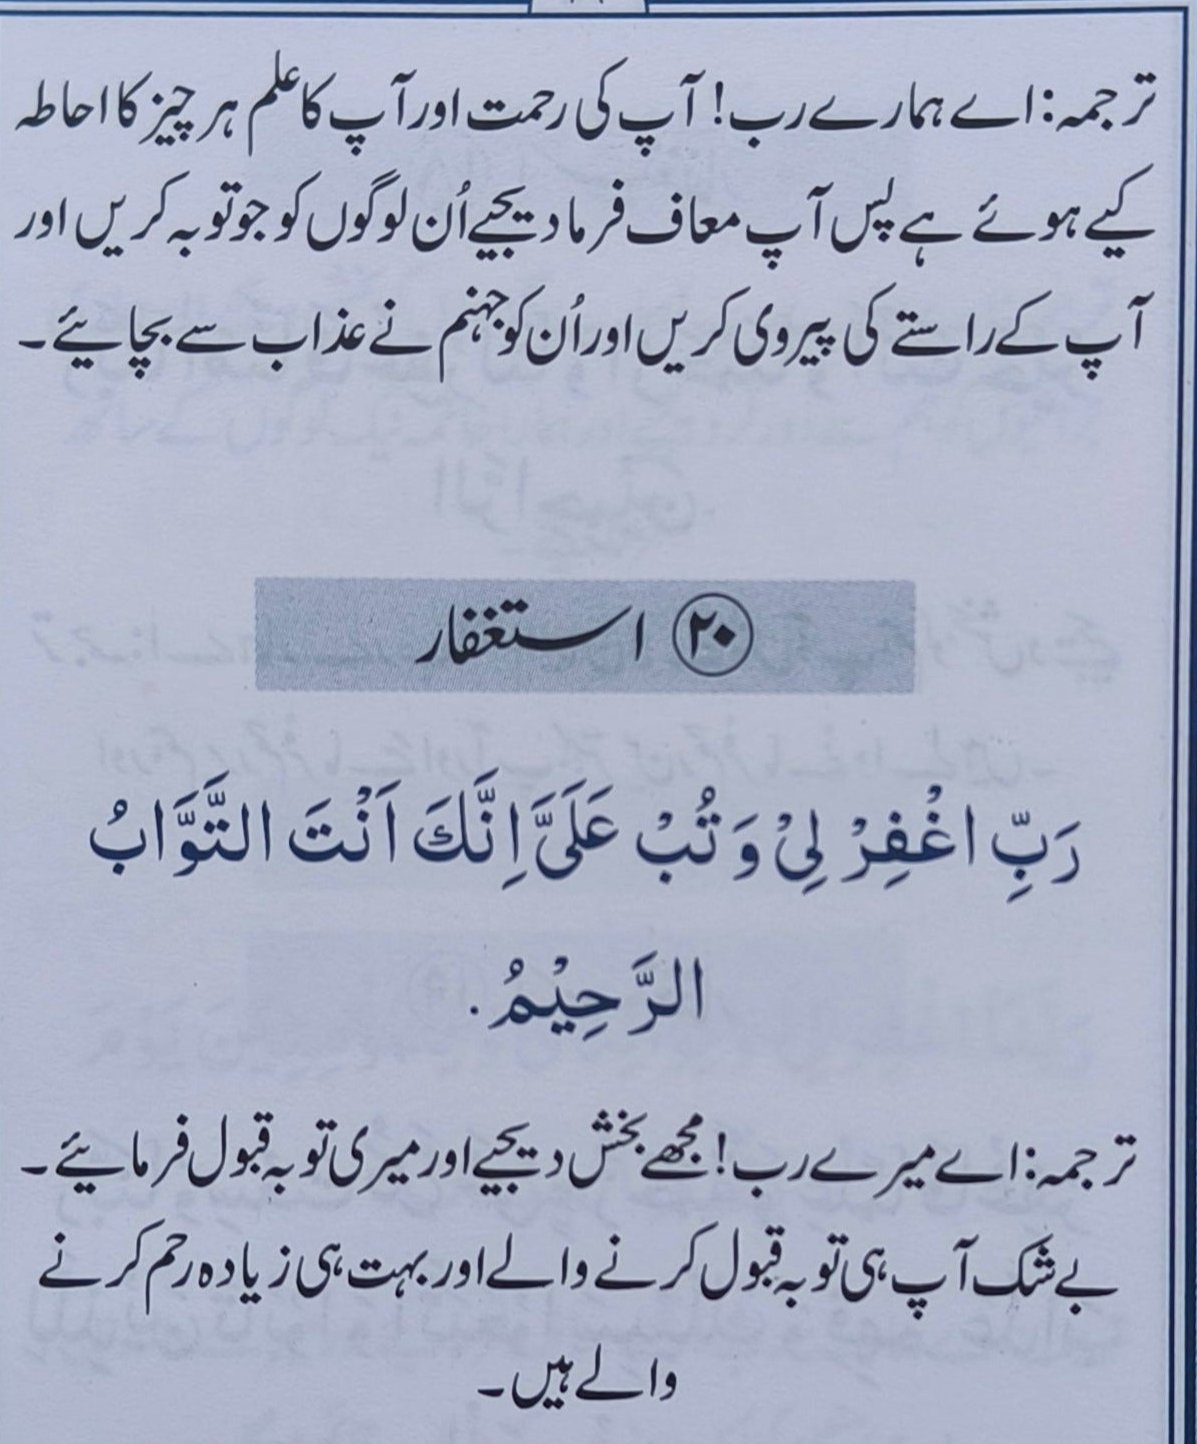 ترجمہ: اے ہمارے رب! آپ کی رحمت اور آپ کا علم ہر چیز کا احاطہ
کیے ہوئے ہے پس آپ معاف فرما دیجیے اُن لوگوں کو جو توبہ کریں اور
آپ کے راستے کی پیروی کریں اور اُن کو جہنم نے عذاب سے بچائیے۔
۲۰ استغفار
رَبِّ اغْفِرْ لِیْ وَ تُبْ عَلَیَّ اِنَّکَ اَنْتَ التَّوَّابُ
الرَّحِیْمُ.
ترجمہ: اے میرے رب! مجھے بخش دیجیے اور میری توبہ قبول فرمائیے۔
بے شک آپ ہی توبہ قبول کرنے والے اور بہت ہی زیادہ رحم کرنے
والے ہیں۔